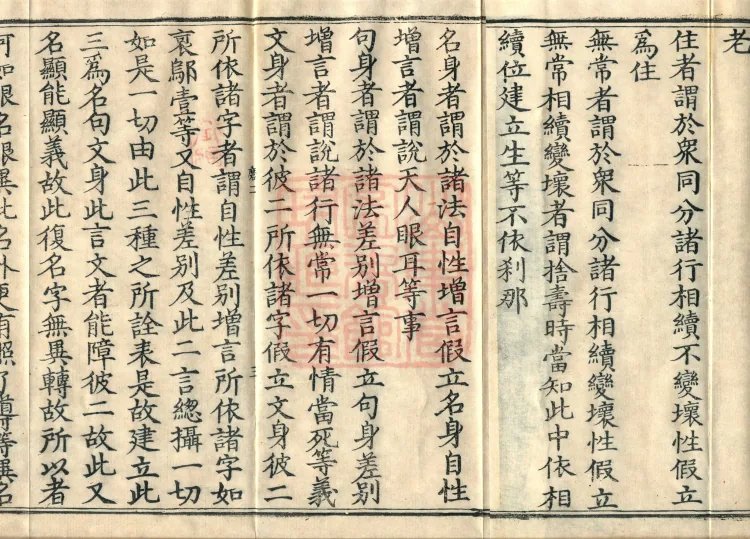 老
住者謂於衆同分諸行相續不變壞性假立
爲住
無常者謂於衆同分諸行相續變壞性假立
無常相續變壞者謂捨壽時當知此中依相
續位建立生等不依刹那
名身者謂於諸法自性增言假立名身自性
增言者謂說天人眼耳等事
句身者謂於諸法差別增言假立句身差別
增言者謂說諸行無常一切有情當死等義
文身者謂於彼二所依諸字假立文身彼二
所依諸字者謂自性差別增言所依諸字如
裒鄔壹等又自性差別及此二言緫攝一切
如是一切由此三種之所詮表是故建立此
三爲名句文身此言文者能障彼二故此又
名顯能顯義故此復名字無異轉故所以者
何如眼名眼異此名外更有照了導等異名